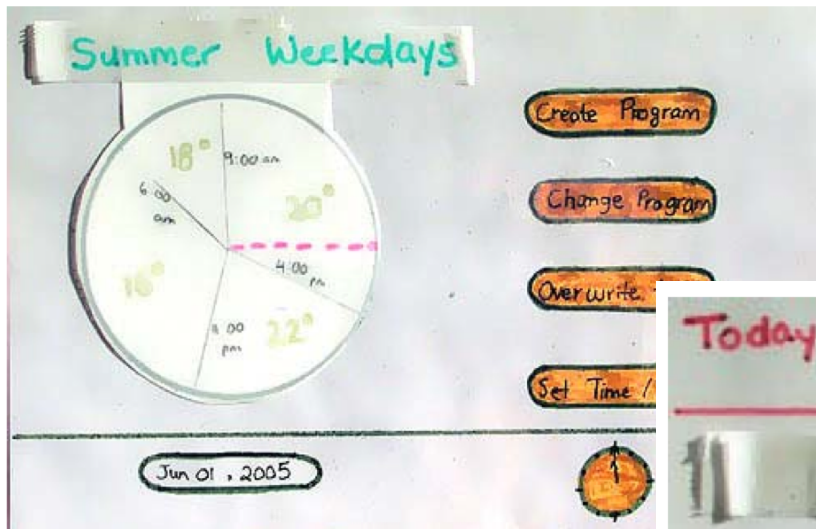 Summer Weekdays
18°
9:00 am
6:00
am
20°
4:00
pm
22°
00
pm
Create Program
Change Program
Overwrite
Set Time /
Jun 01, 2005
Today